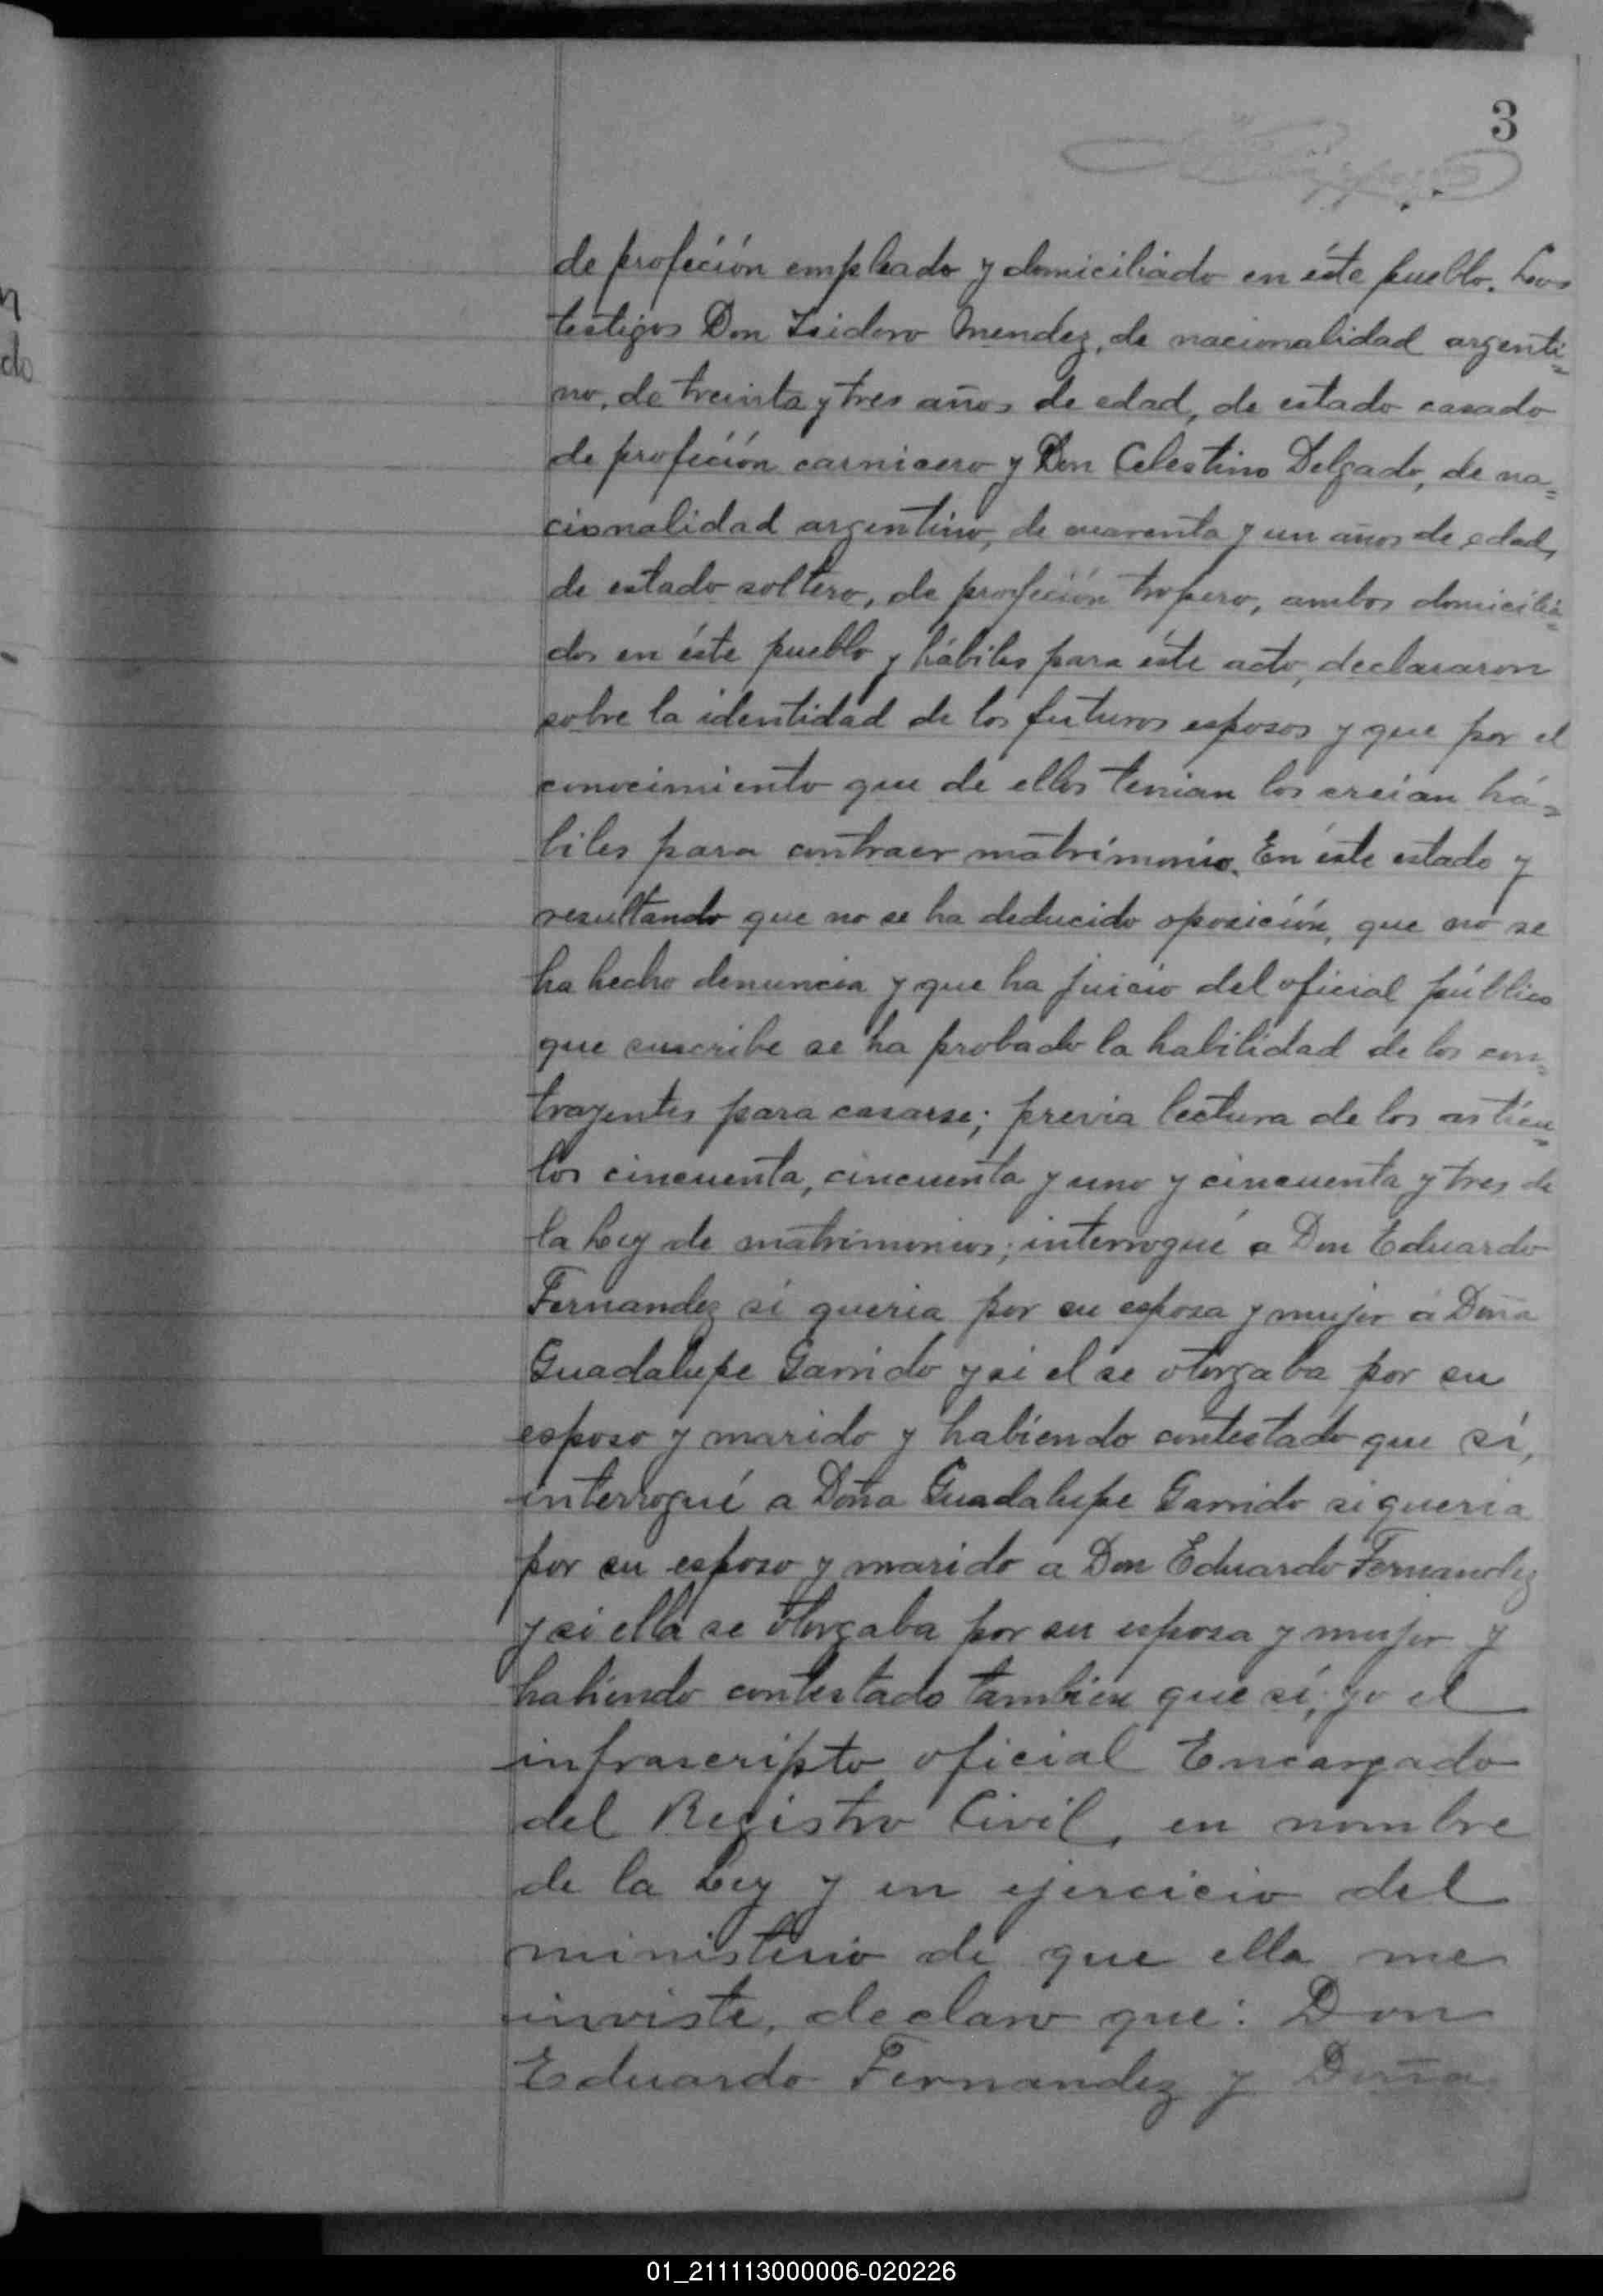 3
de profeción empleado y domiciliado en éste pueblo. Los
testigos Don Isidoro Mendez, de nacionalidad argenti=
no, de treinta y tres años de edad, de estado casado
de profeción carnicero y Don Celestino Delgado, de na=
cionalidad argentino, de cuarenta y un años de edad,
de estado soltero, de profeción tropero, ambos domicilia=
dos en éste pueblo y hábiles para éste acto, declararon
sobre la identidad de los futuros esposos y que por el
conocimiento que de ellos tenian los creian há=
biles para contraer matrimonio. En éste estado y
resultando que no se ha deducido oposición, que no se
ha hecho denuncia y que ha juicio del oficial público
que suscribe se ha probado la habilidad de los con=
trayentes para casarse; previa lectura de los artícu=
los cincuenta, cincuenta y uno y cincuenta y tres de
la Ley de matrimonios; interrogué a Don Eduardo
Fernandez si queria por su esposa y mujer á Doña
Guadalupe Garrido y si el se otorgaba por su
esposo y marido y habiendo contestado que sí,
interrogué a Doña Guadalupe Garrido si queria
por su esposo y marido a Don Eduardo Fernandez
y si ella se otorgaba por su esposa y mujer y
habiendo contestado tambien que sí, yo el
infrascripto oficial Encargado
del Registro Civil, en nombre
de la Ley y en ejercicio del
ministerio de que ella me
inviste, declaro que: Don
Eduardo Fernandez y Doña
n
do
01_211113000006-020226